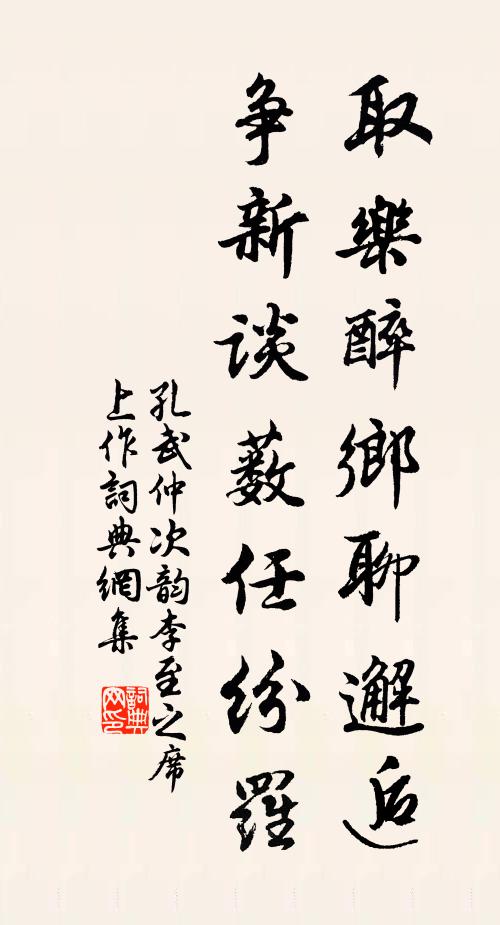 取樂醉鄉聊邂逅
爭新談藪任紛羅
孔武仲次韵李至之席
上作詞典網集
詞典网印